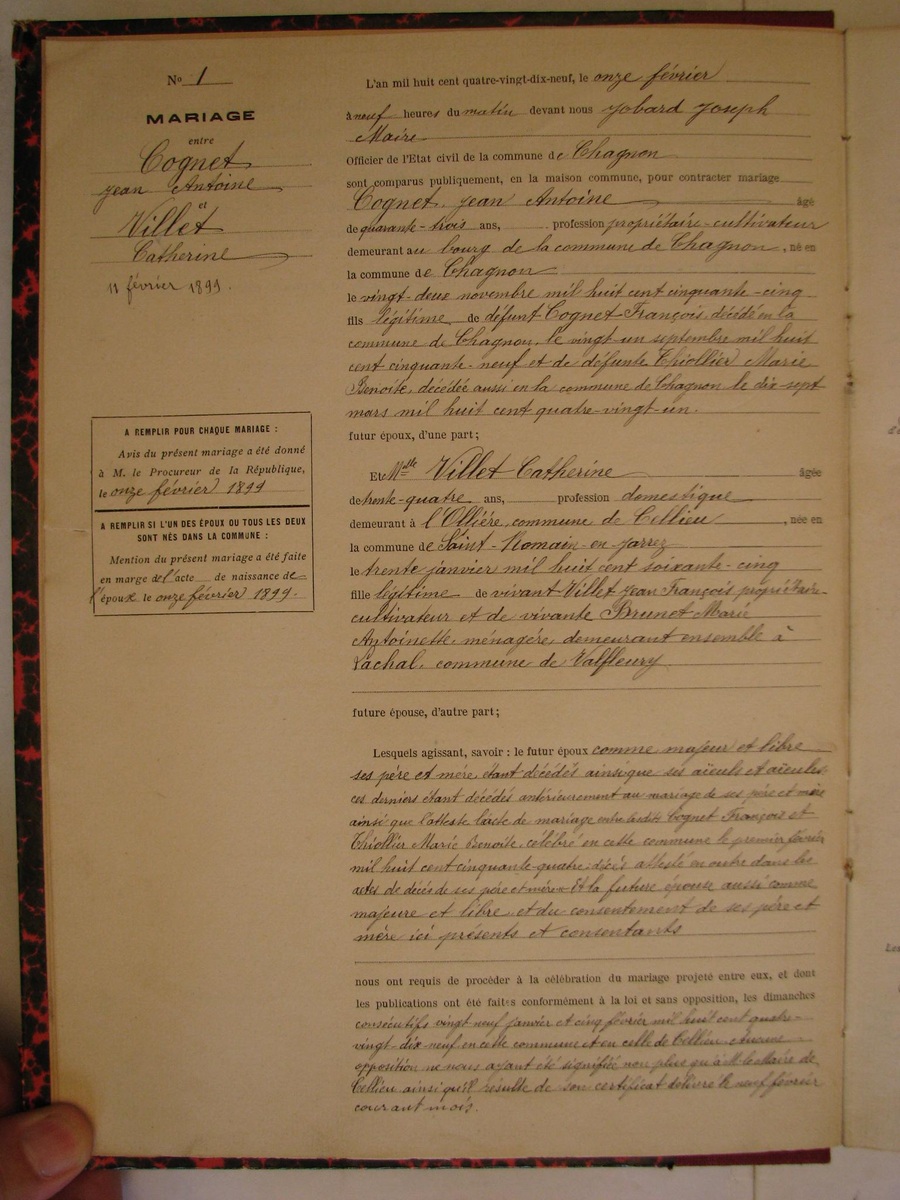 N° 1
MARIAGE
entre
Cognet
Jean Antoine
et
Villet
Catherine
11 février 1899.
A REMPLIR POUR CHAQUE MARIAGE :
Avis du présent mariage a été donné
à M. le Procureur de la République,
le onze février 1899
A REMPLIR SI L'UN DES ÉPOUX OU TOUS LES DEUX
SONT NÉS DANS LA COMMUNE :
Mention du présent mariage a été faite
en marge de l'acte de naissance de
l'époux le onze février 1899.
L'an mil huit cent quatre-vingt-dix-neuf, le onze février
à neuf heures du matin devant nous Jobard Joseph
Maire
Officier de l'Etat civil de la commune de Chagnon
sont comparus publiquement, en la maison commune, pour contracter mariage
Cognet Jean Antoine âgé
de quarante-trois ans, profession propriétaire-cultivateur
demeurant au bourg de la commune de Chagnon, né en
la commune de Chagnon
le vingt-deux novembre mil huit cent cinquante-cinq
fils légitime de défunt Cognet François, décédé en la
commune de Chagnon, le vingt un septembre mil huit
cent cinquante-neuf et de défunte Thiollier Marie
Benoite, décédée aussi en la commune de Chagnon le dix-sept
mars mil huit cent quatre-vingt-un.
futur époux, d'une part ;
Et Mlle Villet Catherine âgée
de trente-quatre ans, profession domestique
demeurant à l'Ollière, commune de Cellieu, née en
la commune de Saint-Romain-en-Jarrez
le trente janvier mil huit cent soixante-cinq
fille légitime de vivant Villet Jean François propriétaire-
cultivateur et de vivante Brunet Marie
Antoinette ménagère, demeurant ensemble à
Lachal, commune de Valfleury.
future épouse, d'autre part ;
Lesquels agissant, savoir : le futur époux comme majeur et libre
ses père et mère étant décédés ainsi que ses aïeuls et aïeules
ces derniers étant décédés antérieurement au mariage de ses père et mère
ainsi que l'atteste l'acte de mariage entre lesdits Cognet François et
Thiollier Marie Benoite, célébré en cette commune le premier février
mil huit cent cinquante-quatre, décès attesté en outre dans les
actes de décès de ses père et mère. Et la future épouse aussi comme
majeure et libre, et du consentement de ses père et
mère ici présents et consentants
nous ont requis de procéder à la célébration du mariage projeté entre eux, et dont
les publications ont été faites conformément à la loi et sans opposition, les dimanches
consécutifs vingt-neuf janvier et cinq février mil huit cent quatre-
vingt-dix-neuf en cette commune et en celle de Cellieu. Aucune
opposition ne nous ayant été signifiée non plus qu'à M. le Maire de
Cellieu ainsi qu'il résulte de son certificat délivré le neuf février
courant mois.